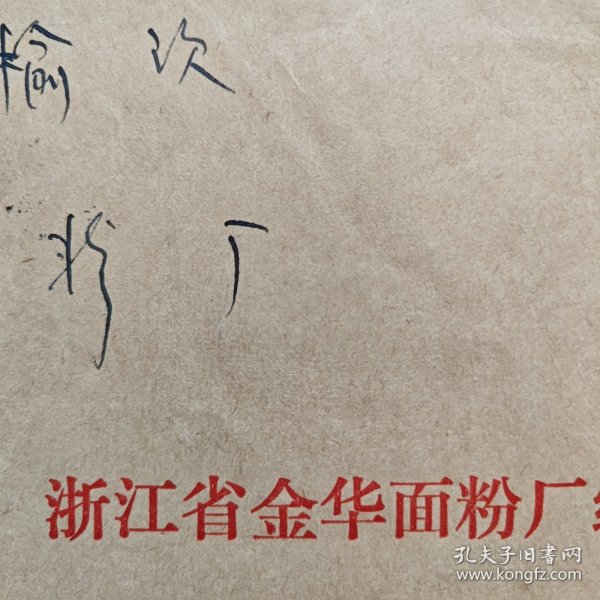 榆次
粉厂
浙江省金华面粉厂
孔夫子旧书网
www.kongfz.com